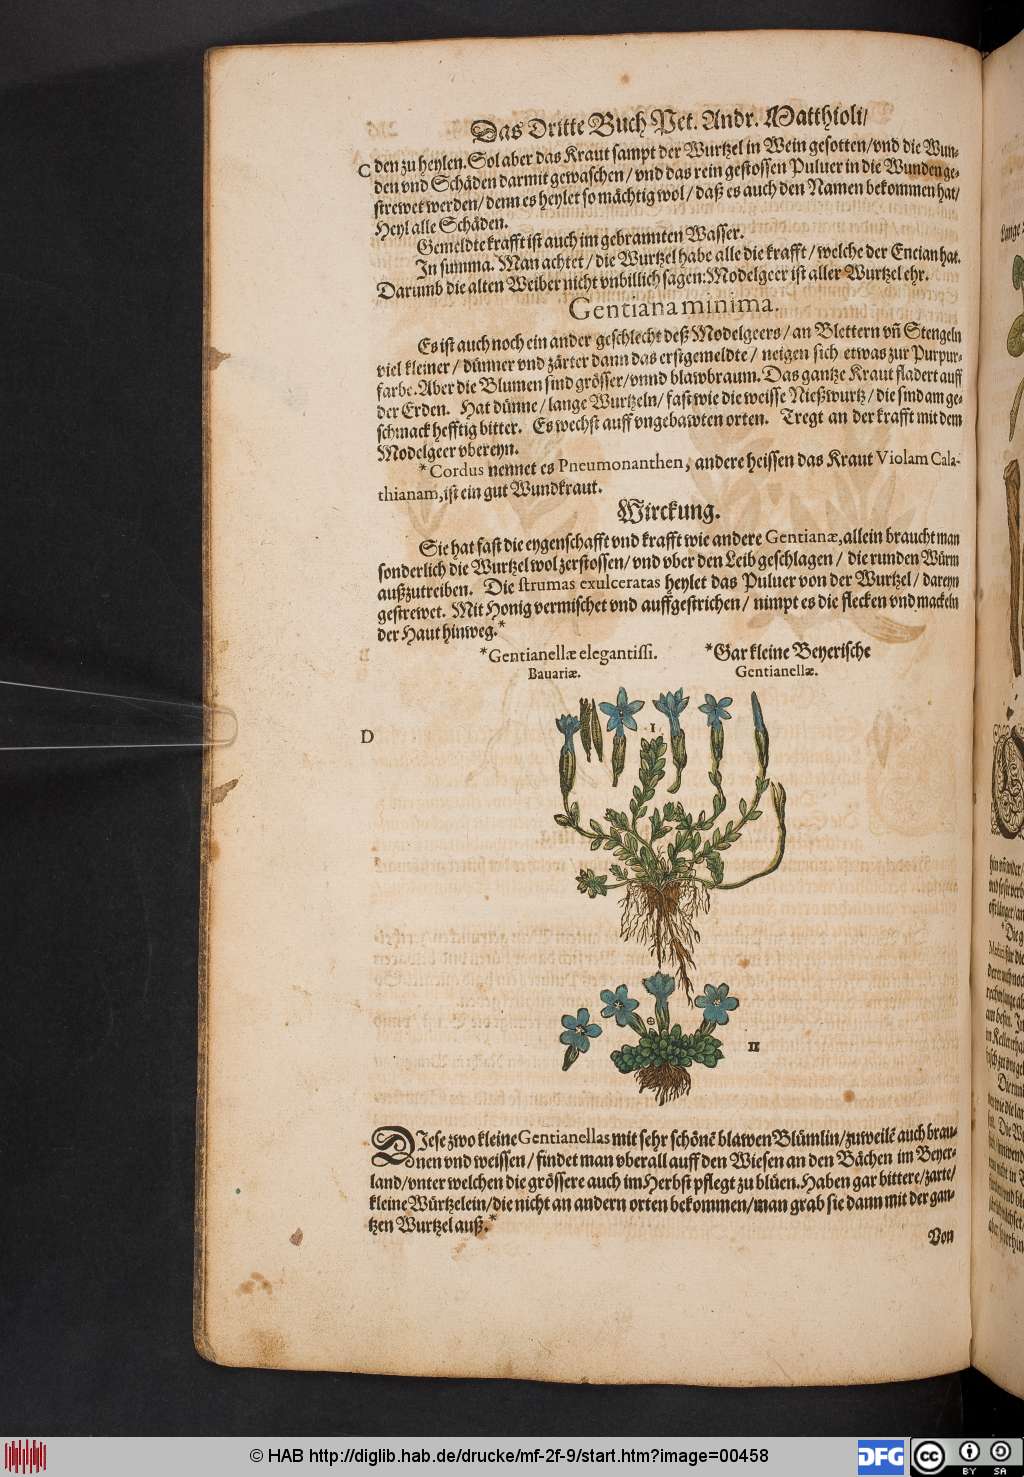 Das Dritte Buch Pet. Andr. Matthioli/
C den zu heylen. Sol aber das Kraut sampt der Wurtzel in Wein gesotten/vnd die Wun-
den vnd Schäden darmit gewaschen / vnd das rein gestossen Puluer in die Wunden ge-
strewet werden/ denn es heylet so mächtig wol / daß es auch den Namen bekommen hat/
Heyl alle Schäden.
Gemeldte krafft ist auch im gebrannten Wasser.
In summa. Man achtet / die Wurtzel habe alle die krafft / welche der Encian hat.
Darumb die alten Weiber nicht vnbillich sagen: Modelgeer ist aller Wurtzel ehr.
Gentiana minima.
Es ist auch noch ein ander geschlecht deß Modelgeers / an Blettern vñ Stengeln
viel kleiner / dünner vnd zärter dann das erstgemeldte / neigen sich etwas zur Purpur-
farbe. Aber die Blumen sind grösser/vnnd blawbraum. Das gantze Kraut fladert auff
der Erden. Hat dünne / lange Wurtzeln/ fast wie die weisse Nießwurtz / die sind am ge-
schmack hefftig bitter. Es wechst auff vngebawten orten. Tregt an der krafft mit dem
Modelgeer vbereyn.
*Cordus nennet es Pneumonanthen, andere heissen das Kraut Violam Cala-
thianam, ist ein gut Wundkraut.
Wirckung.
Sie hat fast die eygenschafft vnd krafft wie andere Gentianæ, allein braucht man
sonderlich die Wurtzel wol zerstossen/ vnd vber den Leib geschlagen / die runden Würm
außzutreiben. Die strumas exulceratas heylet das Puluer von der Wurtzel / dareyn
gestrewet. Mit Honig vermischet vnd auffgestrichen / nimpt es die flecken vnd mackeln
der Haut hinweg.*
*Gentianellæ elegantiss.
Bauariæ.
*Gar kleine Beyerische
Gentianellæ.
I
D
II
DIese zwo kleine Gentianellas mit sehr schönẽ blawen Blümlin/zuweilẽ auch brau-
nen vnd weissen / findet man vberall auff den Wiesen an den Bächen im Beyer-
land/vnter welchen die grössere auch im Herbst pflegt zu blüen. Haben gar bittere/zarte/
kleine Würtzelein/die nicht an andern orten bekommen/man grab sie dann mit der gan-
tzen Wurtzel auß.*
Von
© HAB http://diglib.hab.de/drucke/mf-2f-9/start.htm?image=00458
DFG
cc BY SA